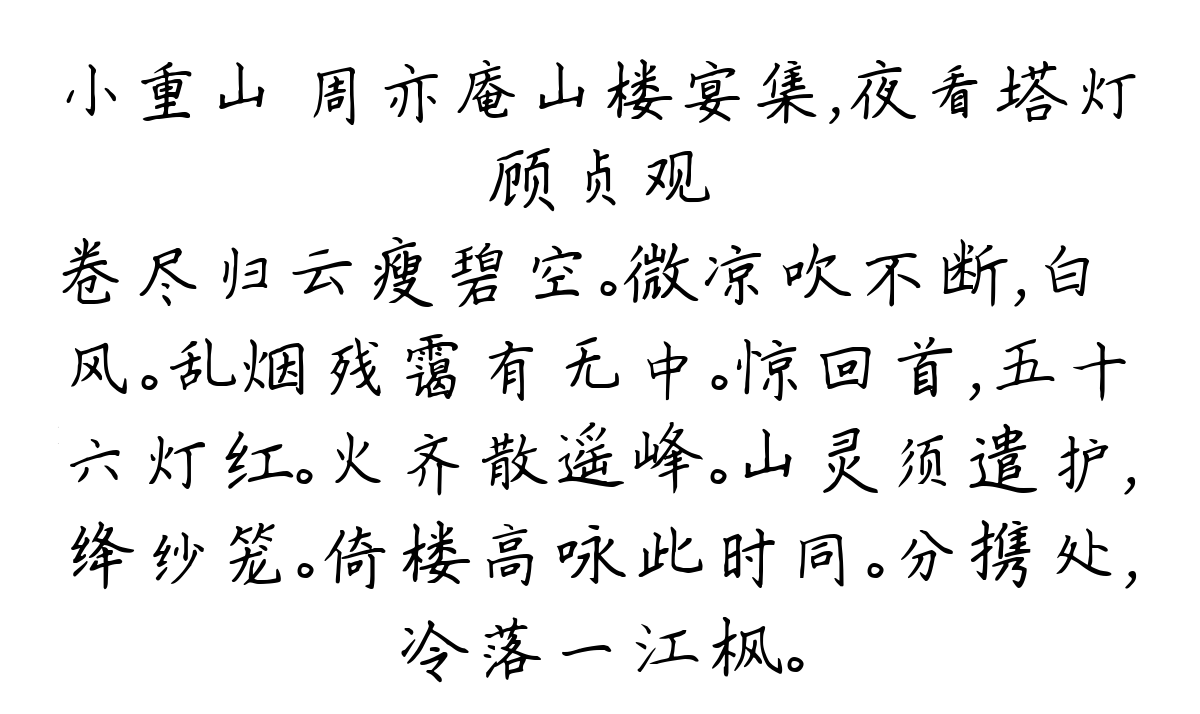 小重山 周亦庵山楼宴集,夜看塔灯
顾贞观
卷尽归云瘦碧空。微凉吹不断,白
风。乱烟残霭有无中。惊回首,五十
六灯红。火齐散遥峰。山灵须遣护,
绛纱笼。倚楼高咏此时同。分携处,
冷落一江枫。